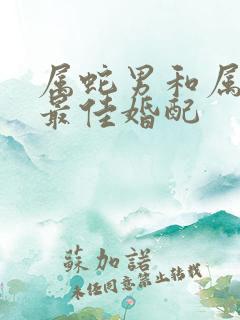 属蛇男和属
最佳婚配
蘇加諾
未经同意禁止转载